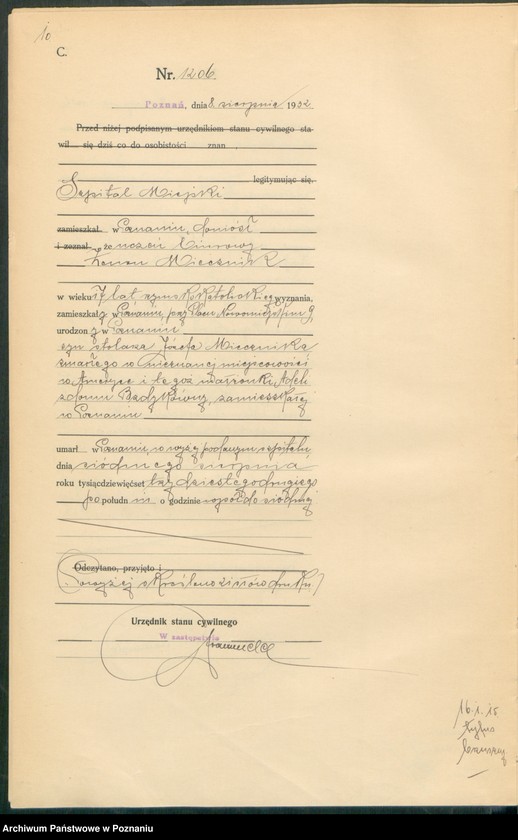 10
C.
Nr. 1206.
Poznań, dnia 8 sierpnia 1932
Przed niżej podpisanym urzędnikiem stanu cywilnego sta-
wił się dziś co do osobistości znan
legitymując się.
Szpital Miejski
zamieszkał w Poznaniu, doniósł
i zeznał, że uczeń biurowy
Zenon Miecznik
w wieku 17 lat, rzymsko katolickiego wyznania,
zamieszkały w Poznaniu, przy Placu Nowomiejskim 9
urodzony w Poznaniu
syn stolarza Józefa Miecznika
zmarłego w nieznanej miejscowości
w Ameryce i tegoż małżonki
z domu zamieszkałej
w Poznaniu
umarł w Poznaniu, w wyżej podanym szpitalu,
dnia siódmego sierpnia
roku tysiącdziewięćset trzydziestego drugiego
po południu o godzinie wpół do siódmej
Odczytano, przyjęto i
Powyżej skreślono druku
Urzędnik stanu cywilnego
W zastępstwie
16.1.15
tyfus
brzuszny
Archiwum Państwowe w Poznaniu